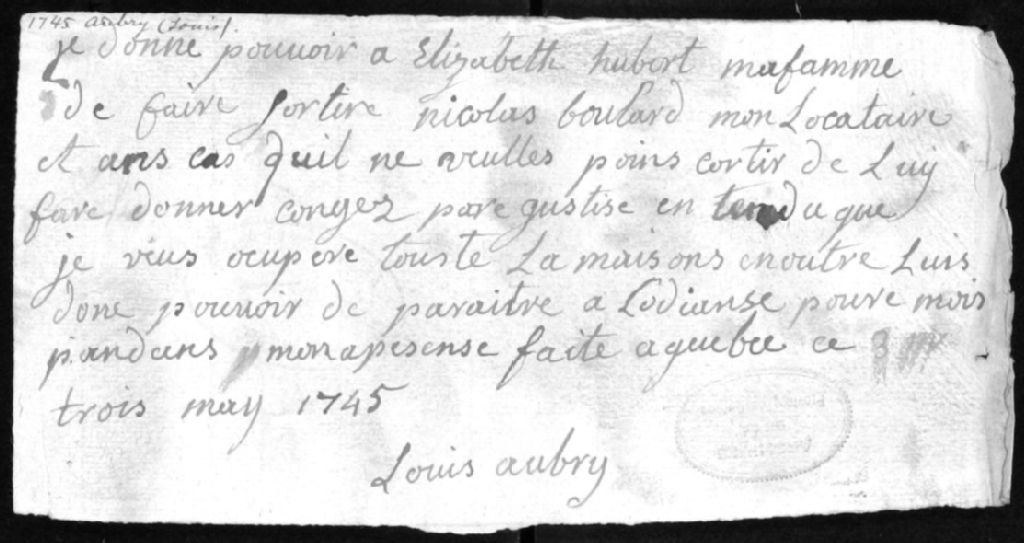 1745 aubry (Louis).
je donne pouvoir a Elizabeth hubert mafamme
de faire sortire nicolas boulard mon Locataire
et ans cas quil ne veulles poins cortir de Luy
fare donner congez pare gustise en tendu que
je veus ocupere touste La maisons enoutre Luis
done pouvoir de paraitre a Lodianse poure mois
pandans monapesense faite aquebec ce
trois may 1745
Louis aubry